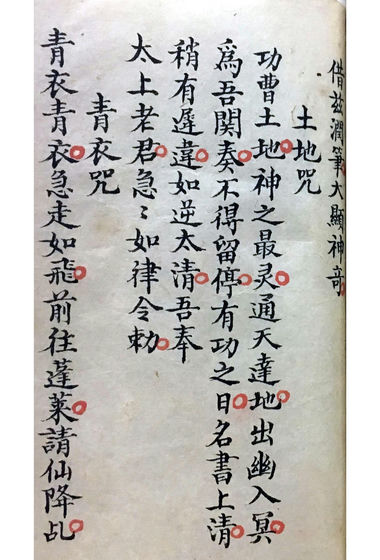 借茲潤筆大顯神奇
土地咒
功曹土地神之最灵通天達地出幽入冥
爲吾關奏不得留停有功之日名書上清
稍有遲違如逆太清吾奉
太上老君急〻如律令勅
青衣咒
青衣青衣急走如飛前往蓬萊請仙降乩